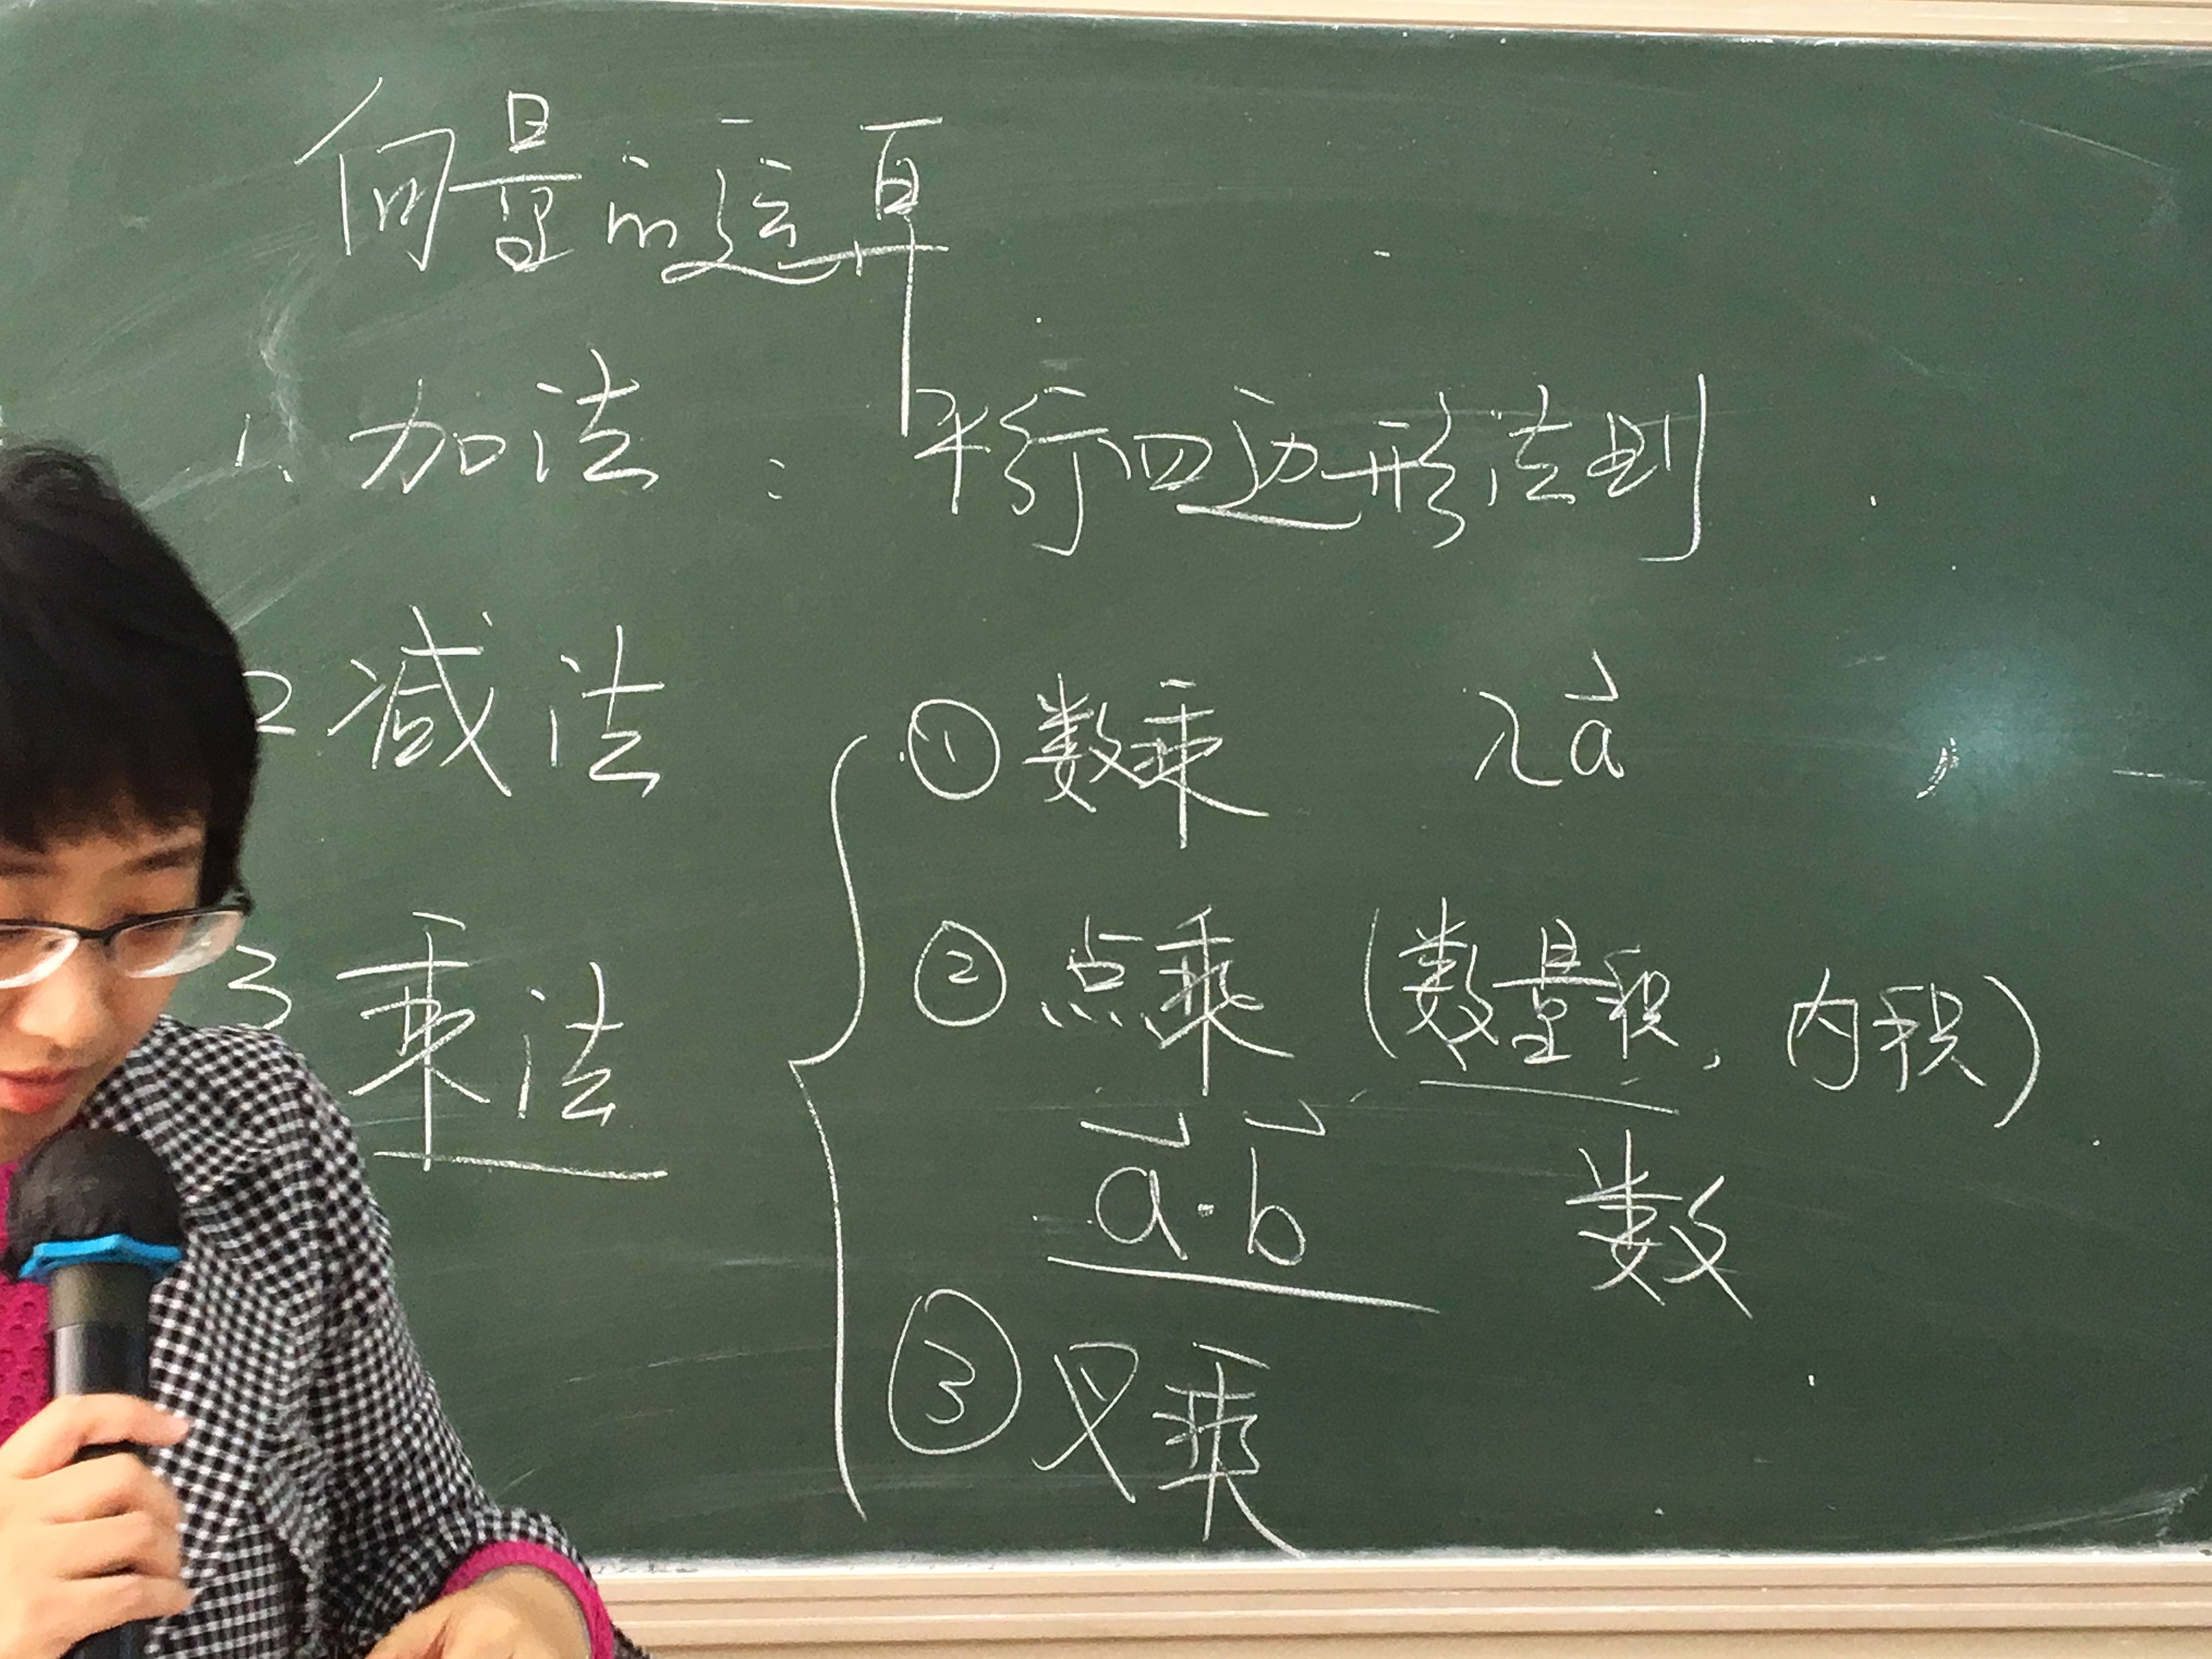 向量的运算
1. 加法：平行四边形法则
2 减法
① 数乘 λa⃗
3 乘法
② 点乘 (数量积, 内积)
a⃗·b⃗ 数
③ 叉乘